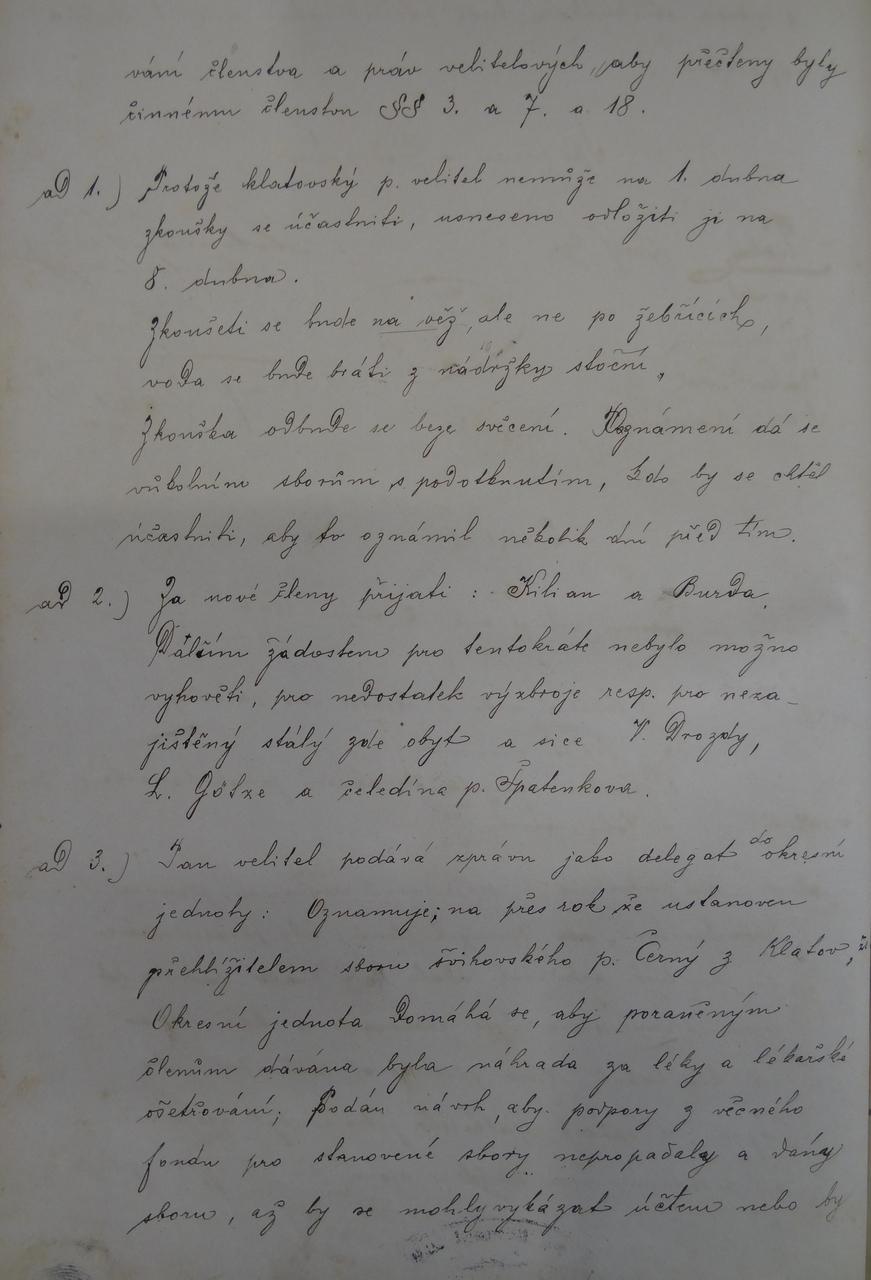 vání členstva a práv velitelových, aby přečteny byly
činnému členstvu §§ 3. a 7. a 18.
ad 1.) Protože klatovský p. velitel nemůže na 1. dubna
zkoušky se účastniti, usneseno odložiti ji na
8. dubna.
Zkoušeti se bude na věž, ale ne po žebřících,
voda se bude bráti z nádržky stoční,
Zkouška odbude se beze svěcení. Oznámení dá se
vůkolním sborům, s podotknutím, kdo by se chtěl
účastniti, aby to oznámil několik dní před tím.
ad 2.) Za nové členy přijati: Kilian a Burda.
Dalším žádostem pro tentokráte nebylo možno
vyhověti, pro nedostatek výzbroje resp. pro neza-
jištěný stálý zde obyt a sice V. Drozdy,
L. Götze a čeledína p. Špatenkova.
ad 3.) Pan velitel podává zprávu jako delegat do okresní
jednoty: Oznamuje; na přes rok že ustanoven
přehlížitelem sboru švihovského p. Černý z Klatov, ž
Okresní jednota domáhá se, aby poraněným
členům dávána byla náhrada za léky a lékařské
ošetřování; Podán návrh, aby podpory z věcného
fondu pro stanovené sbory nepropadaly a dány
sboru, až by se mohly vykázat účtem nebo by